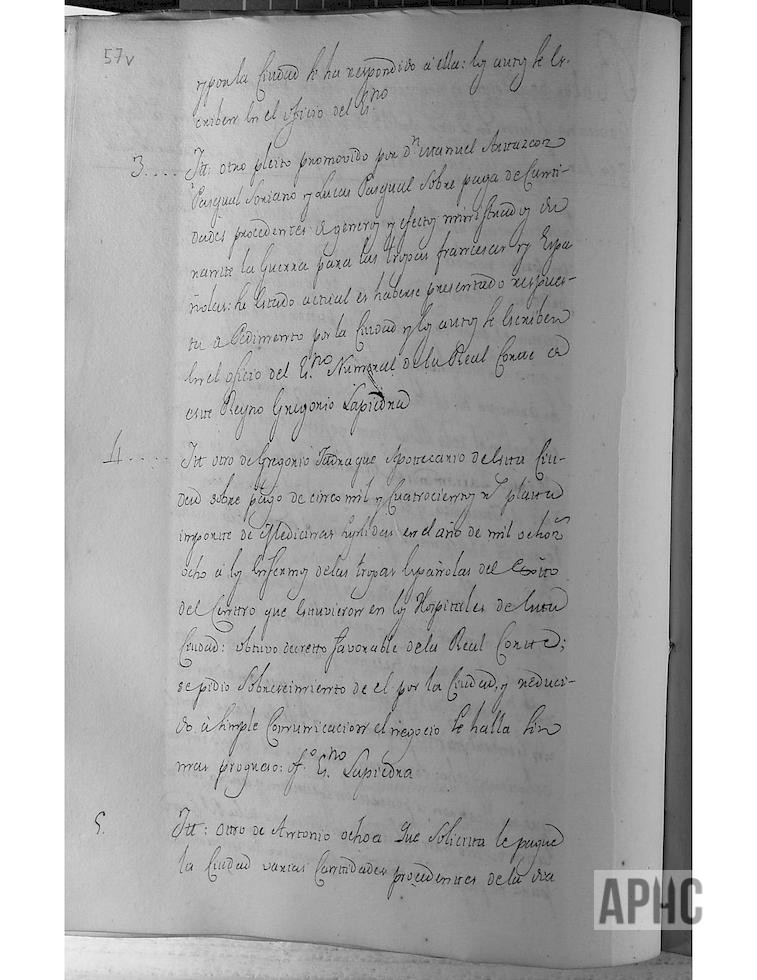 57v
y por la Ciudad se ha respondido a ella: los autos se es-
criben en el oficio del Es.no
3.... Itt: otro pleito promovido por Dn Manuel
Pasqual Soriano y Lucas Pasqual sobre paga de Canti-
dades procedentes de generos y efectos ministrados du
rante la Guerra para las tropas francesas y Espa
ñolas: su estado actual es haberse presentado respues-
ta a Pedimento por la Ciudad y los autos se escriben
en el oficio del Es.no Numeral de la Real Corte de
este Reyno Gregorio Lapiedra
4..... Itt otro de Gregorio Apotecario de esta Ciu-
dad sobre pago de cinco mil y Cuatrocientos rs plata
importe de Medicinas en el año de mil ochos
ocho a los Enfermos de las tropas Españolas del
del Centro que estuvieron en los Hospitales de esta
Ciudad: obtuvo decretto favorable de la Real Corte;
se pidio Sobreseimiento de el por la Ciudad, y reduci-
do a simple Comunicacion el negocio se halla sin
mas progreso: of.o Es.no Lapiedra
5. Itt: otro de Antonio Ochoa Que Solicita le pague
la Ciudad varias Cantidades procedentes de la
APHC